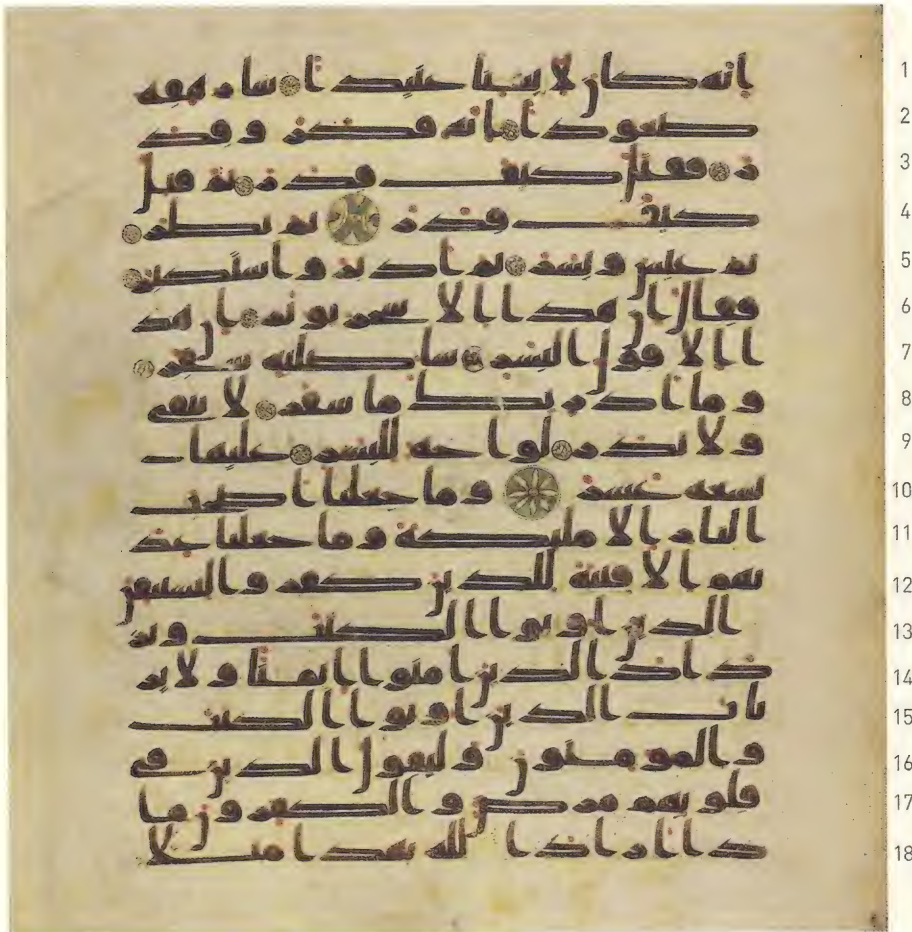 1 انه كان لايتنا عنيدا سارهقه
2 صعودا انه فكر وقد
3 ر فقتل كيف قدر ثم قتل
4 كيف قدر ثم نظر
5 ثم عبس وبسر ثم ادبر واستكبر
6 فقال ان هذا الا سحر يوثر ان هذ
7 ا الا قول البشر ساصليه سقر
8 وما ادريك ما سقر لا تبقي
9 ولا تذر لواحه للبشر عليها
10 تسعه عشر وما جعلنا اصحب
11 النار الا مليكة وما جعلنا عد
12 تهم الا فتنة للذين كفروا ليستيقن
13 الذين اوتوا الكتب ويز
14 داد الذين امنوا ايمنا ولا ير
15 تاب الذين اوتوا الكتب
16 والمومنون وليقول الذين في
17 قلوبهم مرض والكفرون ما
18 ذا اراد الله بهذا مثلا